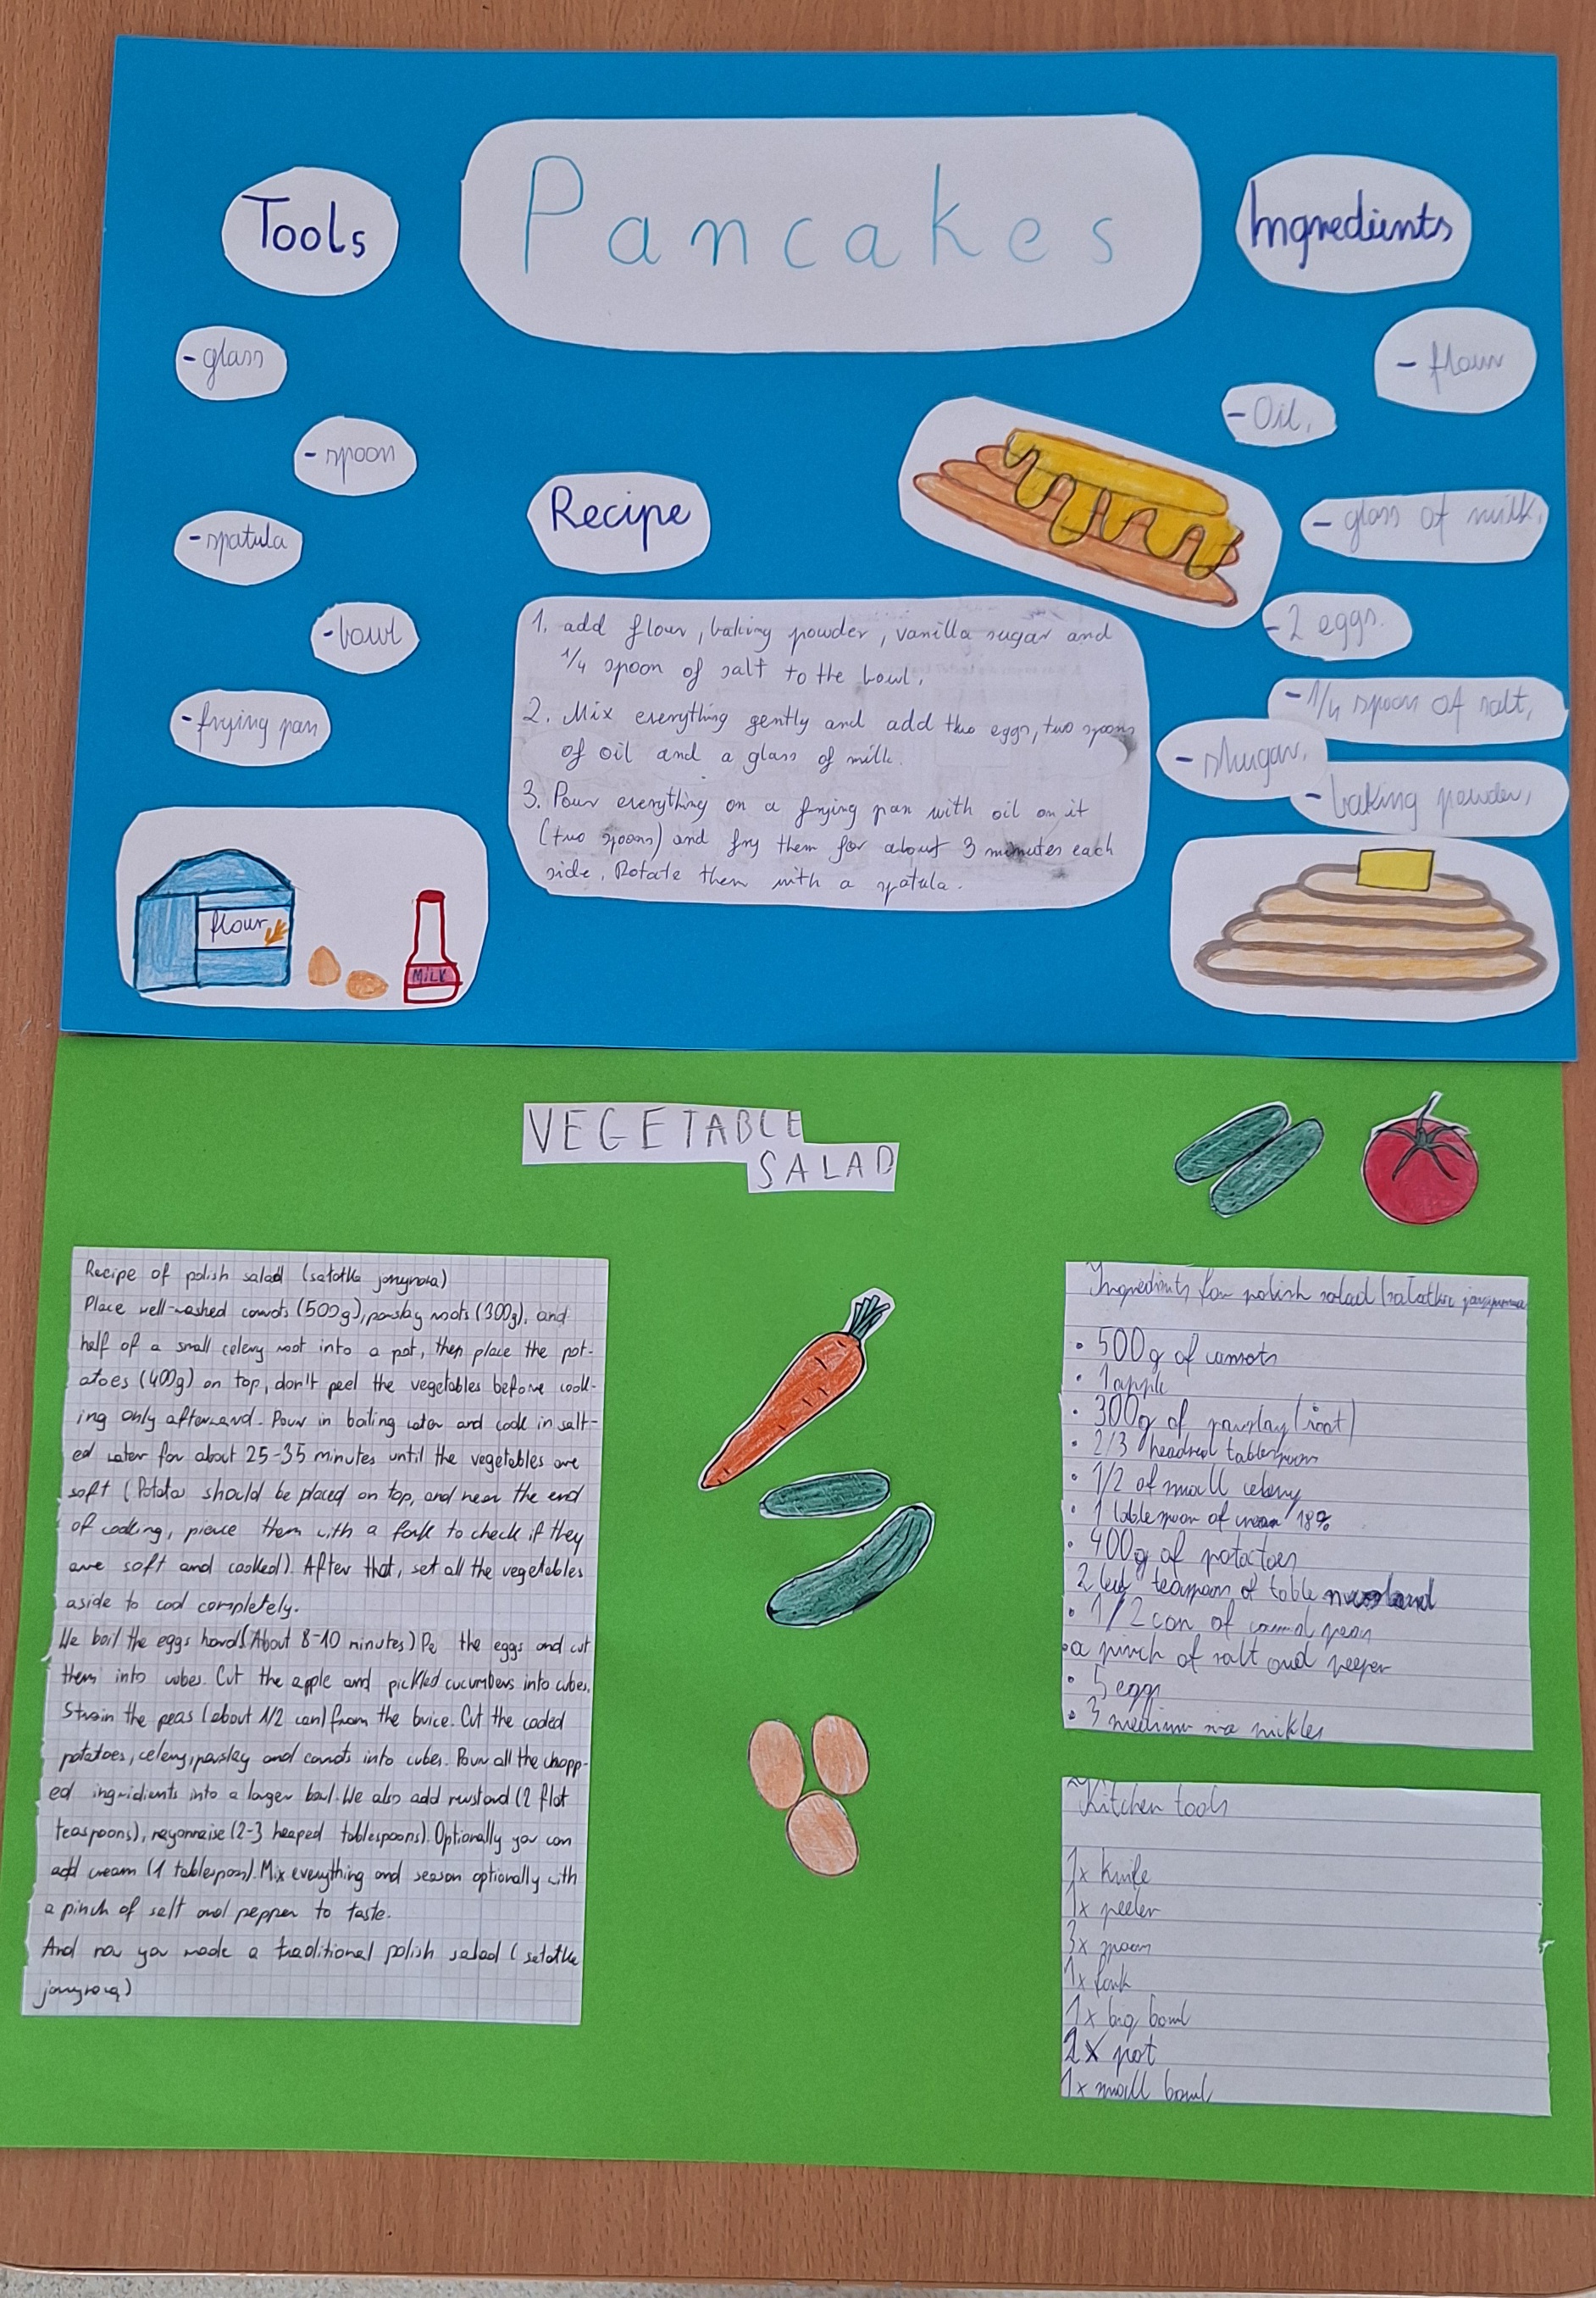 Pancakes
Tools
- glass
- spoon
- spatula
- bowl
- frying pan
Recipe
1. add flour, baking powder, vanilla sugar and
1/4 spoon of salt to the bowl.
2. Mix everything gently and add two eggs, two spoons
of oil and a glass of milk.
3. Pour everything on a frying pan with oil on it
(two spoons) and fry them for about 3 minutes each
side. Rotate them with a spatula.
Ingredients
- flour
- Oil,
- glass of milk,
- 2 eggs.
- 1/4 spoon of salt,
- shugar,
- baking powder,
flour
MILK
VEGETABLE
SALAD
Recipe of polish salad
Place well-washed carrots (500g), parslay roots (300g), and
half of a small celery root into a pot, then place the pot-
atoes (400g) on top, don't peel the vegetables before cook-
ing only afterward. Pour in boiling water and cook in salt-
ed water for about 25-35 minutes until the vegetables are
soft (Potatos should be placed on top, and near the end
of cooking, pierce them with a fork to check if they
are soft and cooked). After that, set all the vegetables
aside to cool completely.
We boil the eggs hard (About 8-10 minutes) Pe the eggs and cut
them into cubes. Cut the apple and pickled cucumbers into cubes.
Strain the peas (about 1/2 can) from the buice. Cut the cooked
potatoes, celery, parslay and carrots into cubes. Pour all the chopp-
ed ingridients into a larger bowl. We also add mustard (2 flat
teaspoons), mayonnaise (2-3 heaped tablespoons). Optionally you can
add cream (1 tablespoon). Mix everything and season optionally with
a pinch of salt and pepper to taste.
And now you made a traditional polish salad (
Ingredients for polish salad
• 500g of carrots
• 1 apple
• 300g of parslay (root)
• 2/3 tablespoons
• 1/2 of small celery
• 1 tablespoon of cream 18%
• 400g of potatoes
2 teaspoon of table
• 1/2 can of peas
• a pinch of salt and peeper
• 5 eggs
• 3 medium size pickles
Kitchen tools
1x knife
1x peeler
3x spoon
1x fork
1x big bowl
2x pot
1x small bowl